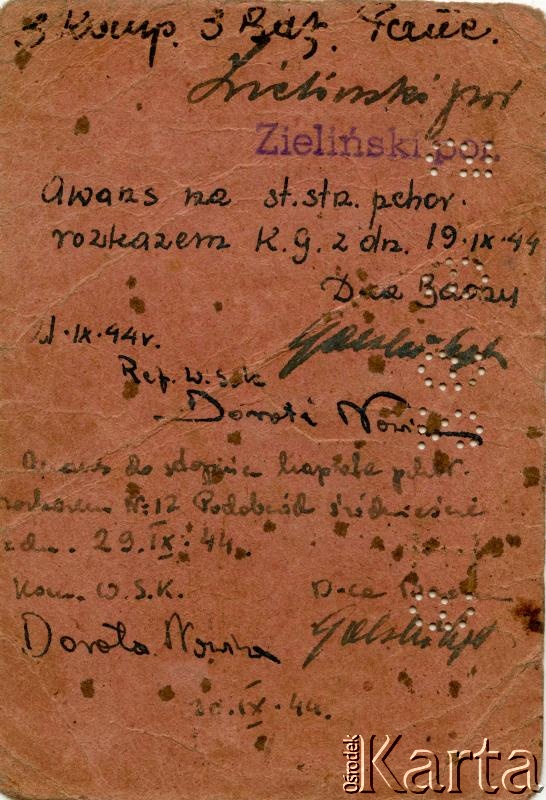 3 Komp. 3 Baţ. Panc.
Zieliński por
Zieliński por.
Awans na st. strz. pchor.
rozkazem K. G. z dn. 19.IX.44
D-ca Bazy
.IX.44r.
Ref. W.S.K
Dorota Nowina
Awans do stopnia kaprala pchor.
rozkazem Nr 12 Podobwód Śródmieście
z dn. 29.IX.44.
Kom. W.S.K. D-ca Bazy
Dorota Nowina
.IX.44.
Ośrodek Karta